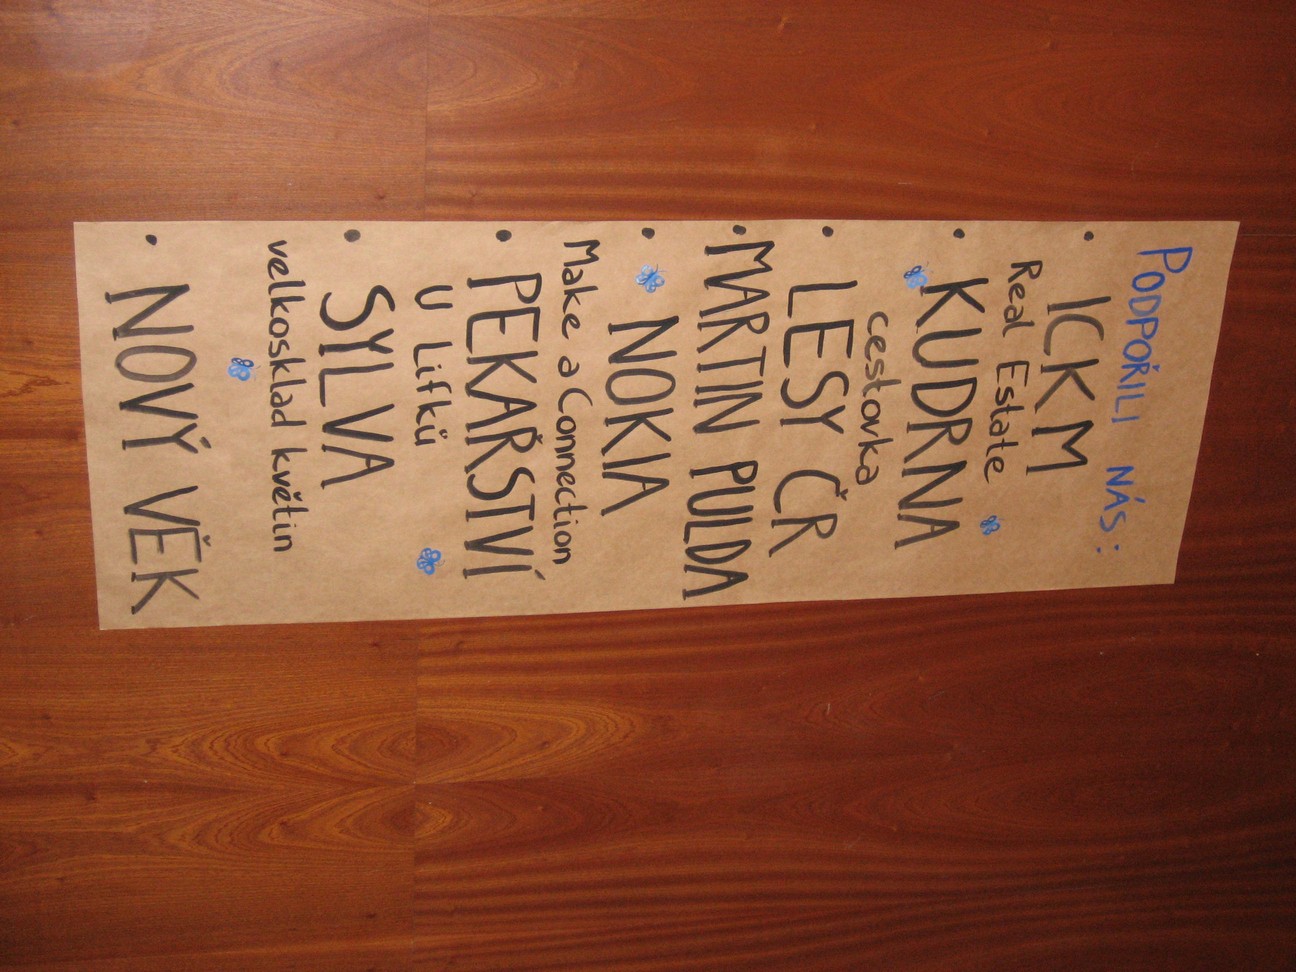 PODPOŘILI NÁS:
• ICKM
Real Estate
• KUDRNA
cestovka
• LESY ČR
• MARTIN PULDA
• NOKIA
Make a Connection
• PEKAŘSTVÍ
U Lifků
• SYLVA
velkosklad květin
• NOVÝ VĚK